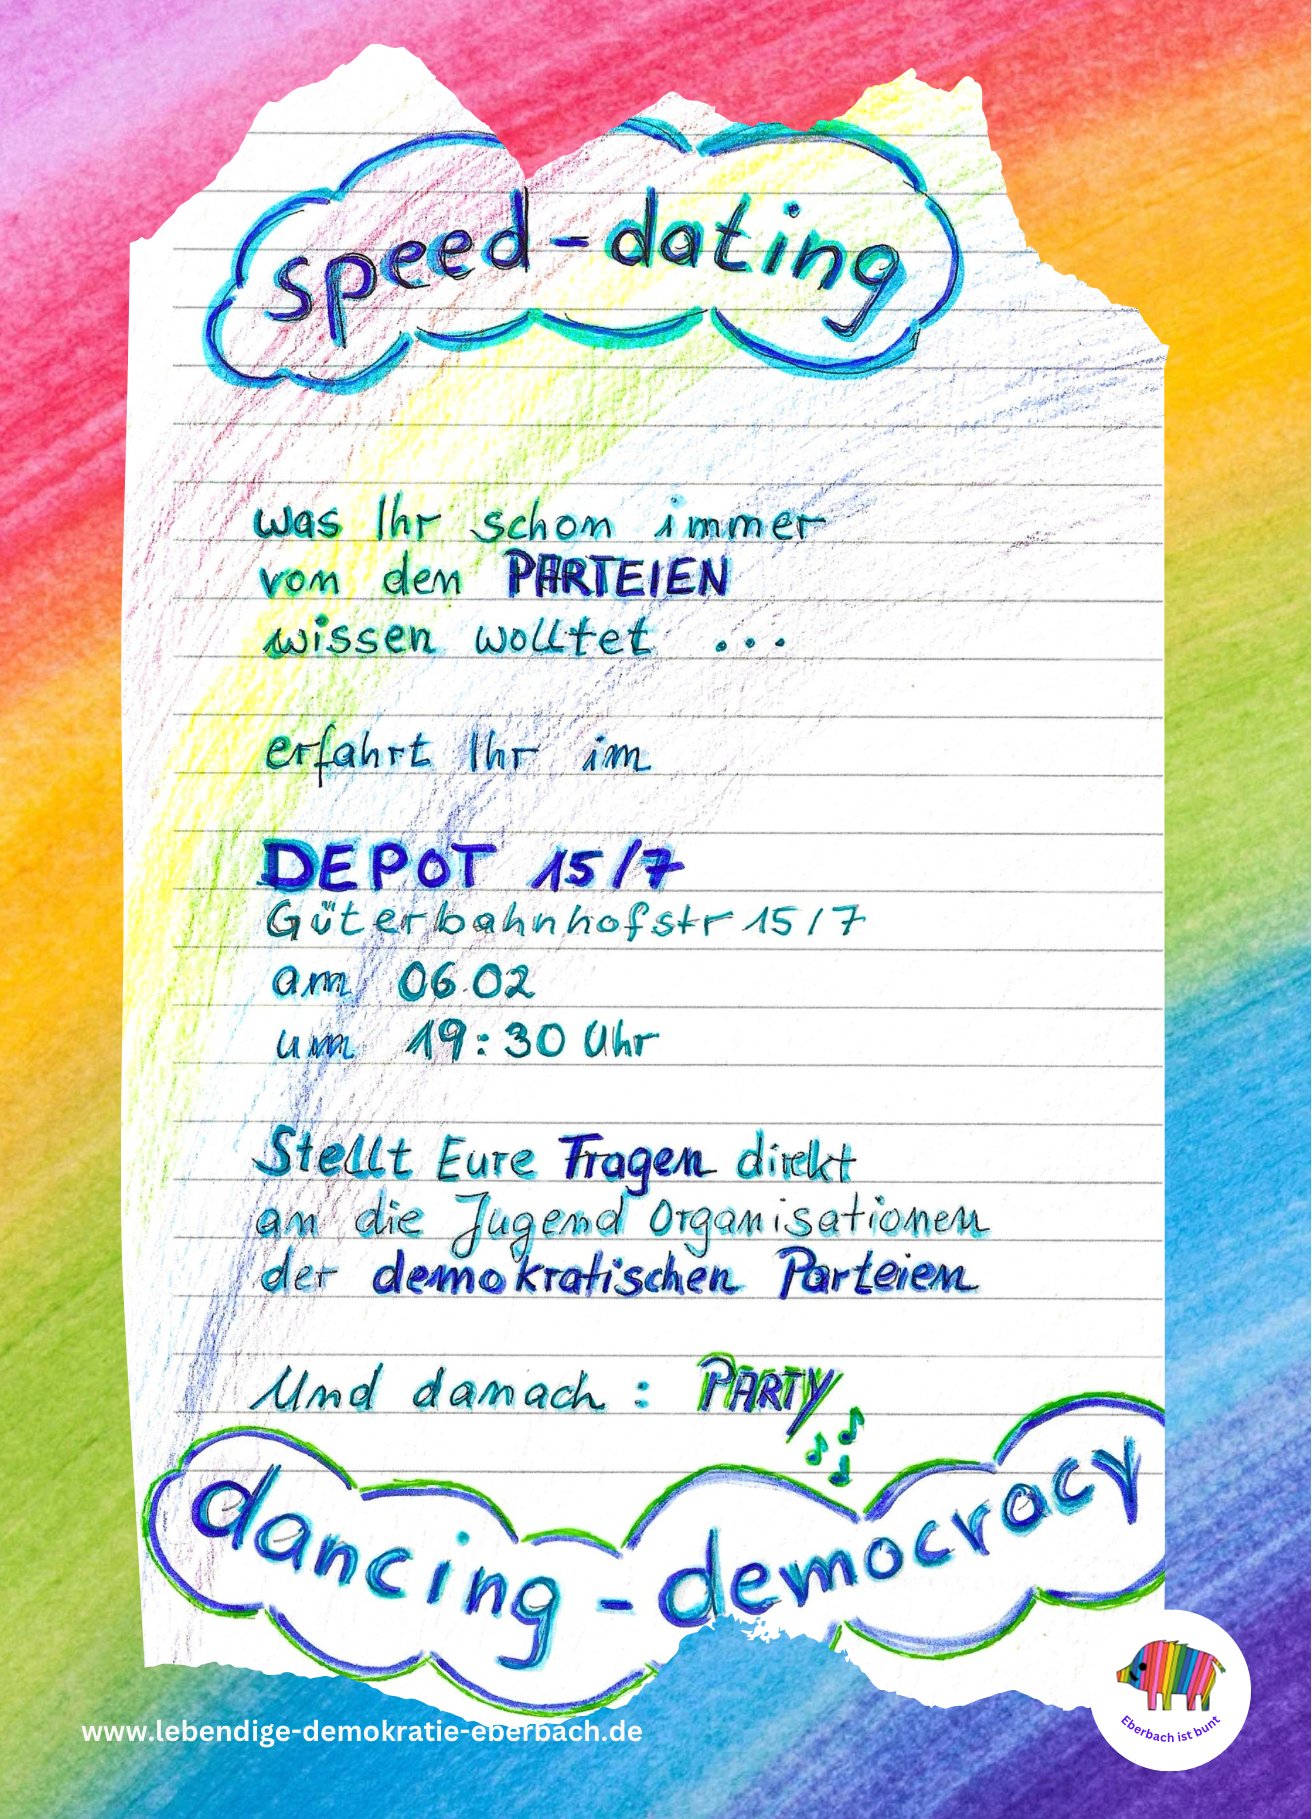 speed-dating
was Ihr schon immer
von den PARTEIEN
wissen wolltet ...
erfahrt Ihr im
DEPOT 15/7
Güterbahnhofstr 15/7
am 06.02
um 19:30 Uhr
Stellt Eure Fragen direkt
an die Jugend Organisationen
der demokratischen Parteien
Und danach: PARTY
dancing-democracy
www.lebendige-demokratie-eberbach.de
Eberbach ist bunt